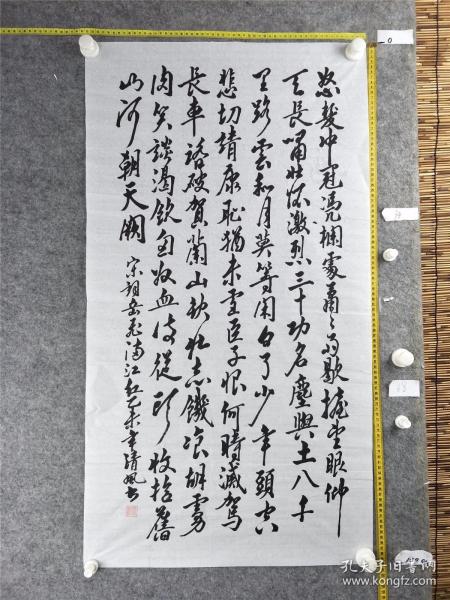 怒髮冲冠憑欄處蕭蕭雨歇擡望眼仰
天長嘯壯懷激烈三十功名塵與土八千
里路雲和月莫等閑白了少年頭空
悲切靖康恥猶未雪臣子恨何時滅駕
長車踏破賀蘭山缺壯志饑飡胡虜
肉笑談渴飲匈奴血待從頭收拾舊
山河朝天闕
宋詞岳飛滿江紅乙未年清風書
孔夫子旧书网
www.kongfz.com